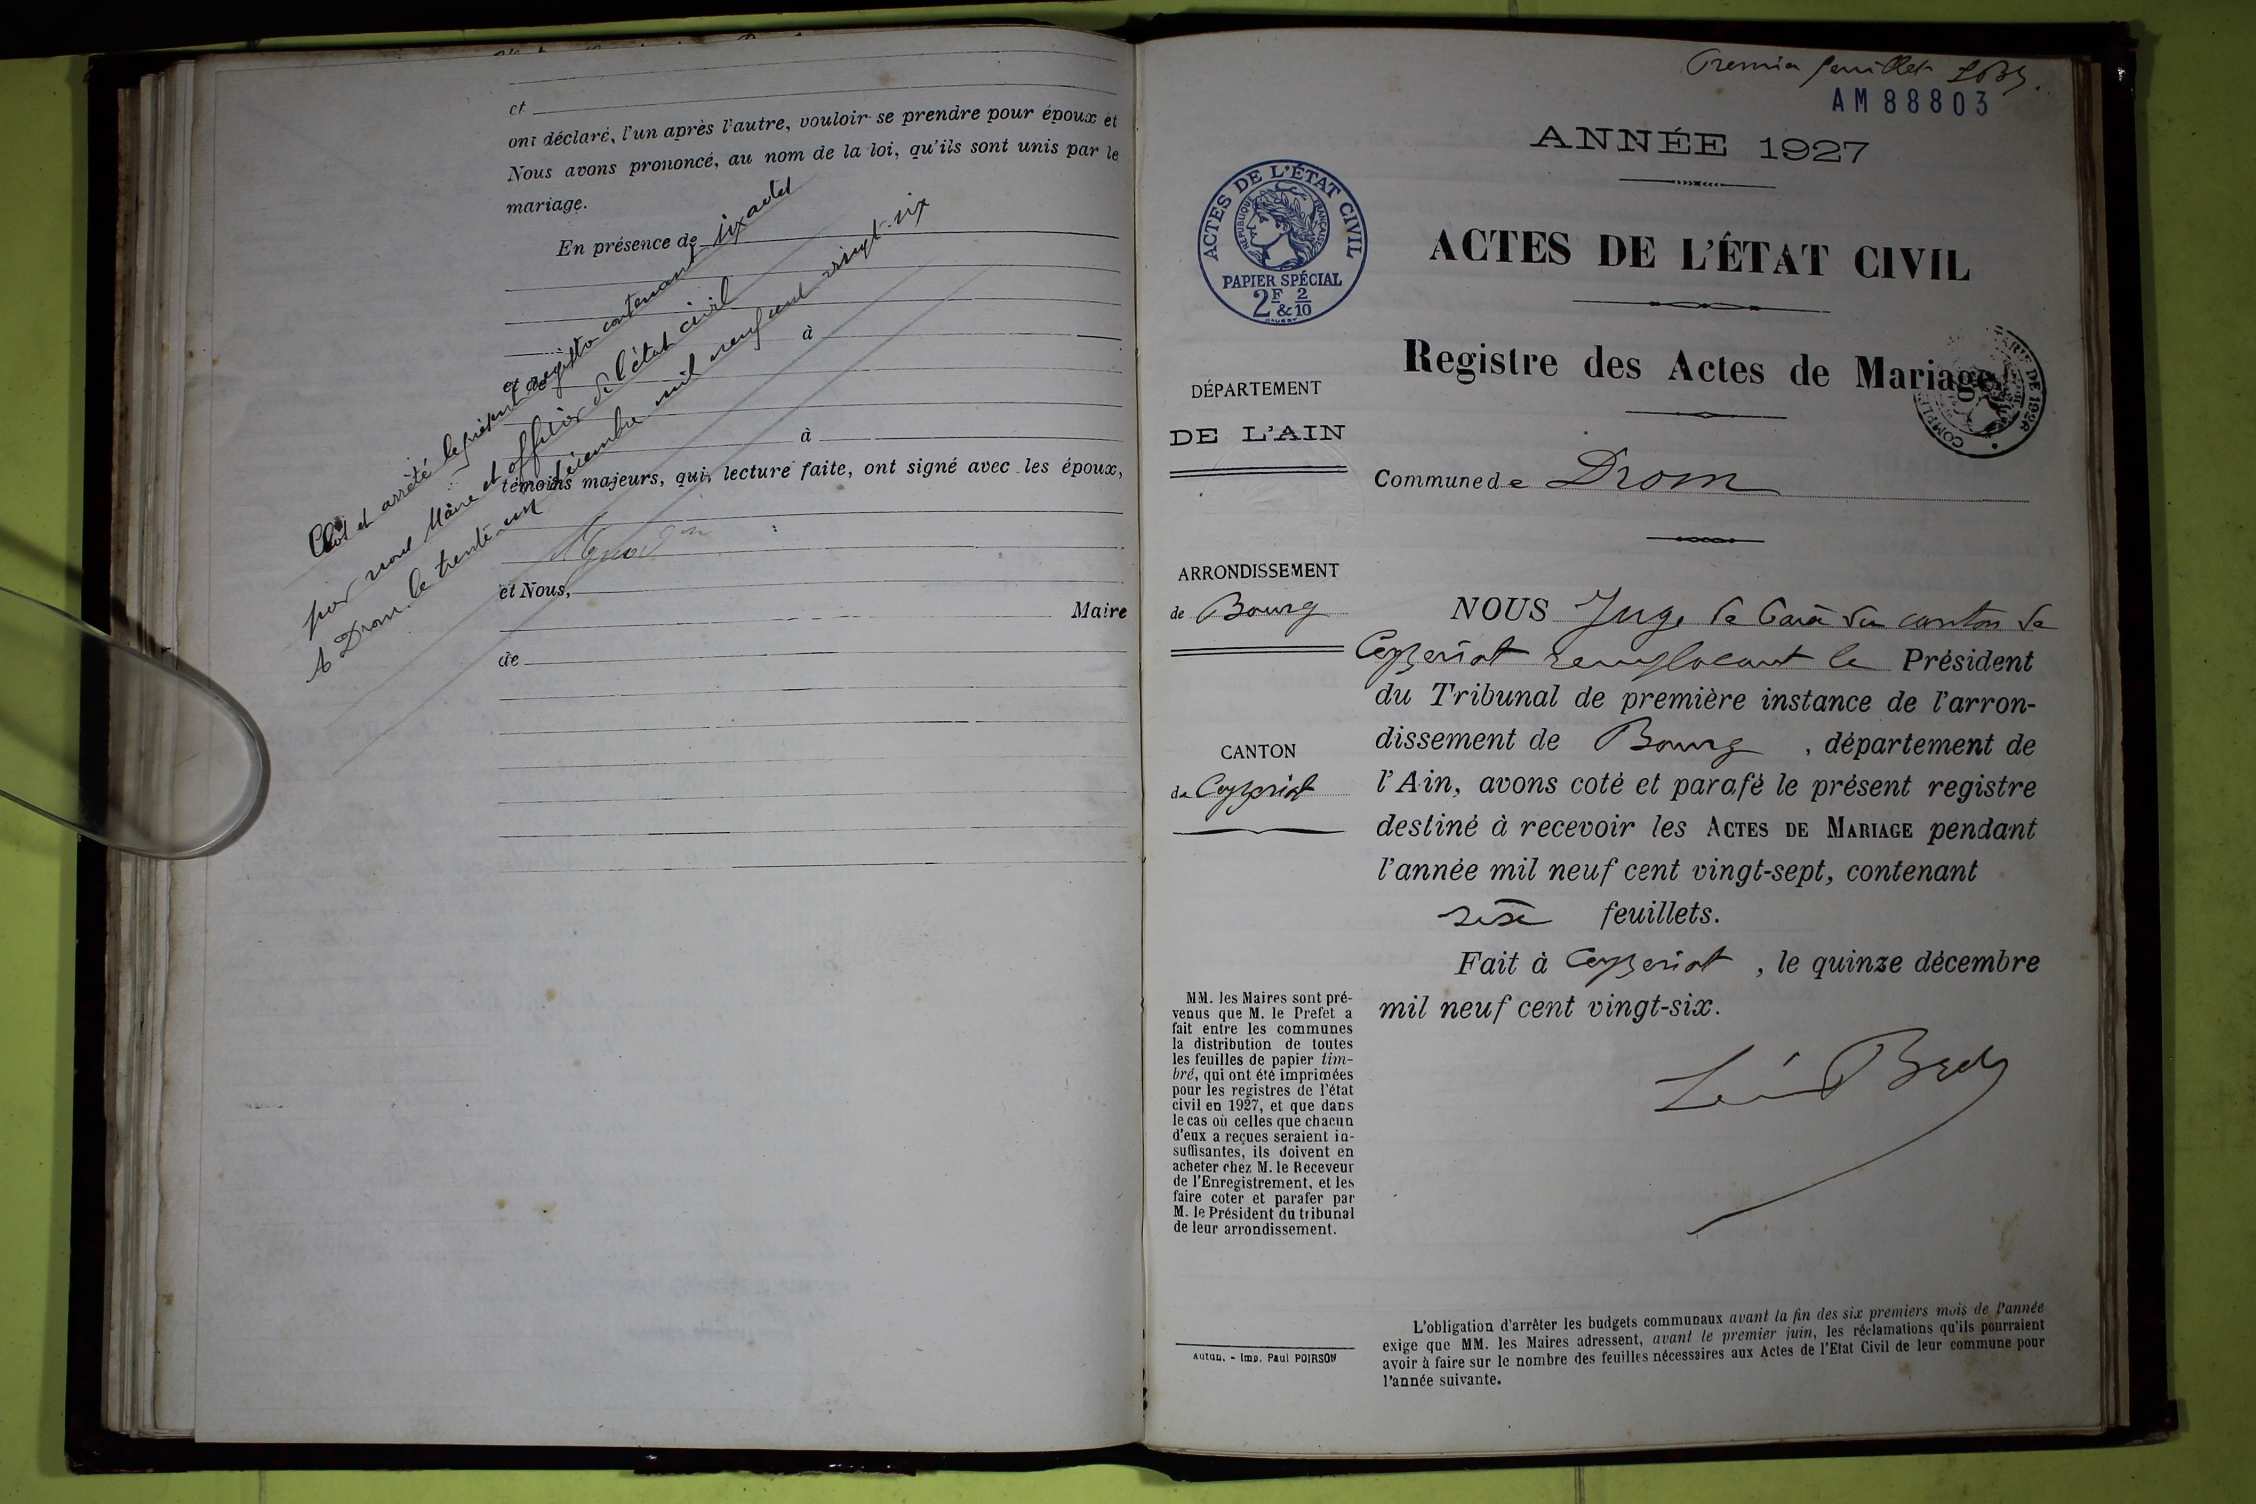 et
ont déclaré, l'un après l'autre, vouloir se prendre pour époux et
Nous avons prononcé, au nom de la loi, qu'ils sont unis par le
mariage.
En présence de
à
à
témoins majeurs, qui, lecture faite, ont signé avec les époux,
et Nous,
Maire
de
Clos et arrêté le présent registre contenant six actes
par nous Maire et officier de l'état civil
A Drom le trente-un décembre mil neuf cent vingt-six
Premier feuillet
AM 88803
ANNÉE 1927
ACTES DE L'ÉTAT CIVIL
RÉPUBLIQUE FRANÇAISE
PAPIER SPÉCIAL
2F & 2/10
ACTES DE L'ÉTAT CIVIL
Registre des Actes de Mariage
DÉPARTEMENT
DE L'AIN
Commune de Drom
ARRONDISSEMENT
de Bourg
CANTON
de Ceyzeriat
NOUS Juge de Paix du canton de
Ceyzeriat remplaçant le Président
du Tribunal de première instance de l'arron-
dissement de Bourg, département de
l'Ain, avons coté et parafé le présent registre
destiné à recevoir les ACTES DE MARIAGE pendant
l'année mil neuf cent vingt-sept, contenant
feuillets.
Fait à Ceyzeriat, le quinze décembre
mil neuf cent vingt-six.
MM. les Maires sont pré-
venus que M. le Prefet a
fait entre les communes
la distribution de toutes
les feuilles de papier tim-
bré, qui ont été imprimées
pour les registres de l'état
civil en 1927, et que dans
le cas où celles que chacun
d'eux a reçues seraient in-
suffisantes, ils doivent en
acheter chez M. le Receveur
de l'Enregistrement, et les
faire coter et parafer par
M. le Président du tribunal
de leur arrondissement.
Autun. - Imp. Paul POIRSON
L'obligation d'arrêter les budgets communaux avant la fin des six premiers mois de l'année
exige que MM. les Maires adressent, avant le premier juin, les réclamations qu'ils pourraient
avoir à faire sur le nombre des feuilles nécessaires aux Actes de l'Etat Civil de leur commune pour
l'année suivante.